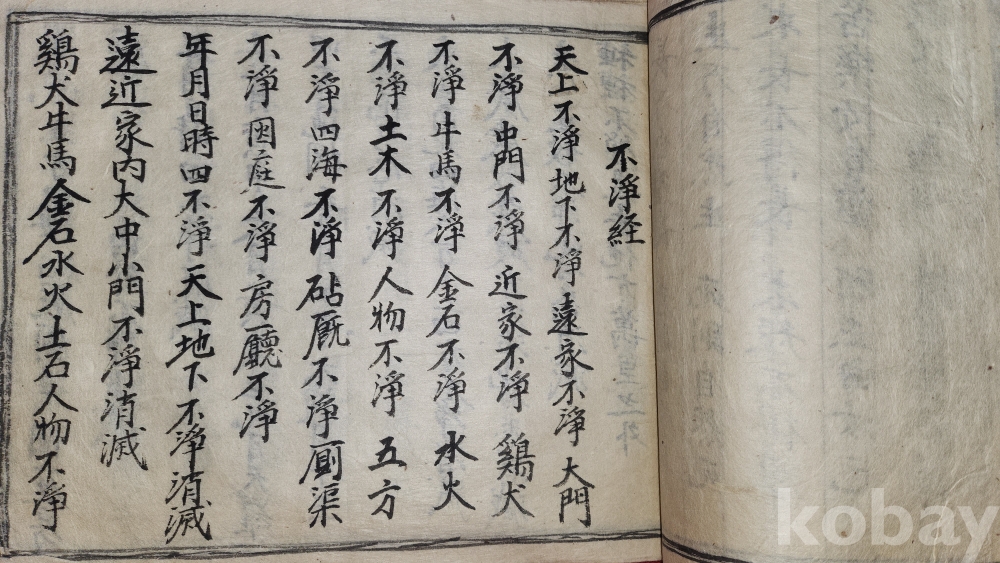 不淨経
天上不淨地下不淨遠家不淨大門
不淨中門不淨近家不淨鷄犬
不淨牛馬不淨金石不淨水火
不淨土木不淨人物不淨五方
不淨四海不淨砧厩不淨厠渠
不淨囙庭不淨房廳不淨
年月日時四不淨天上地下不淨消滅
遠近家内大中小門不淨消滅
鷄犬牛馬金石水火土石人物不淨
kobay